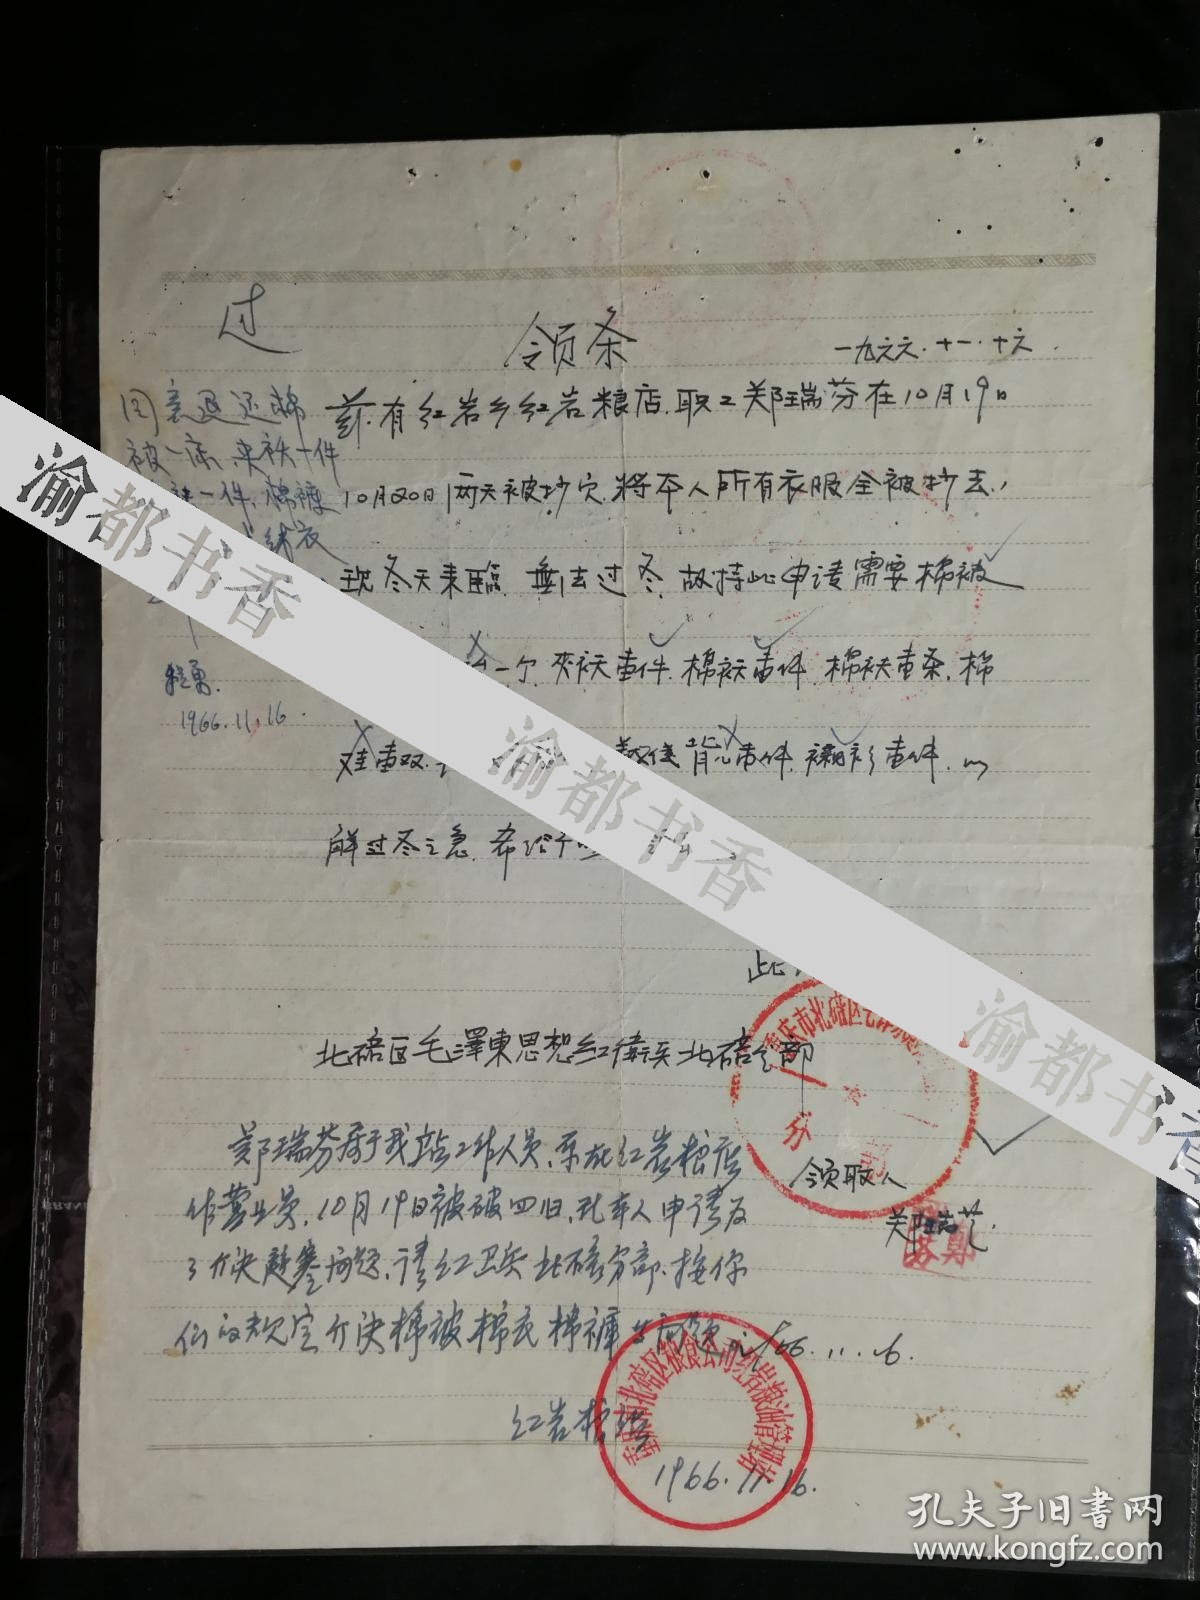 过
领条
一九六六.十一.十六.
兹有红岩乡红岩粮店.职工郑瑞芬在10月19日
10月20日两天被抄穴.将本人所有衣服全被抄去,
现冬天来臨 無法过冬.故持此申请需要棉被
一个.夹袄壹件.棉袄壹件 棉袄壹条.棉
鞋壹双. 背心壹件.襯衫壹件.以
解过冬之急.希给予
此
北碚区毛澤東思想红衛兵北碚分部
领取人
郑瑞芬.
同意退还棉
被一床.夹袄一件
袄一件.棉裤
绒衣
程勇.
1966.11.16.
郑瑞芬属于我站工作人员.系在红岩粮店
作营业员.10月19日被破四旧.现本人申请为
了介决过寒问题.请红卫兵北碚分部.按你
们的规定介决棉被棉衣棉裤 问题 66.11.16.
红岩粮站
1966.11.16.
重庆市北碚区毛泽东思想
分部
重庆市北碚区粮食公司红岩粮油管理站
渝都书香
渝都书香
渝都书香
孔夫子旧书网
www.kongfz.com